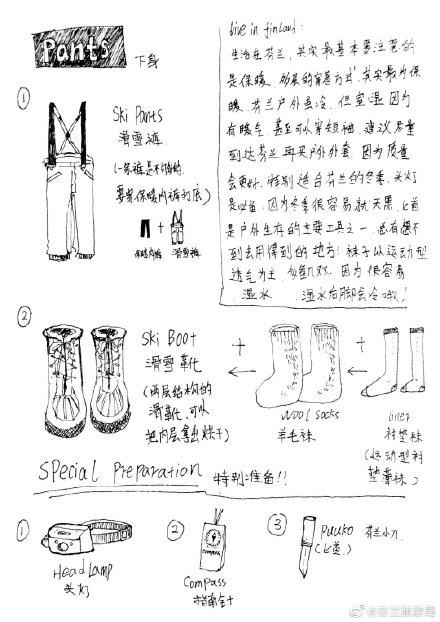 Pants 下身
① Ski Pants
滑雪裤
(一条裤是不够的,
要穿保暖内裤打底)
+
保暖内裤 滑雪裤
live in finland:
生活在芬兰,其实最基本要注意的
是保暖,多层的穿着方式,其实最为保
暖,芬兰户外虽冷,但室温因为
有暖气,甚至可以穿短袖,建议尽量
到达芬兰再买户外外套,因为质量
会更好,特别适合芬兰的冬季,头灯
是必备,因为冬季很容易就天黑,匕首
是户外生存的主要工具之一,总有想不
到去用得到的地方!袜子以运动型
透气为主,多整几双,因为很容易
湿水 湿水后脚会冷哦!
② Ski Boot
滑雪靴
(两层结构的
滑雪靴,可以
把内层拿出烘干)
+
Wool Socks
羊毛袜
+
liner
衬垫袜
(运动型衬
垫薄袜)
Special Preparation 特别准备!!
① Headlamp
头灯
② Compass
指南针
③ Puuko 芬兰小刀
(匕首)
@芬兰旅游局